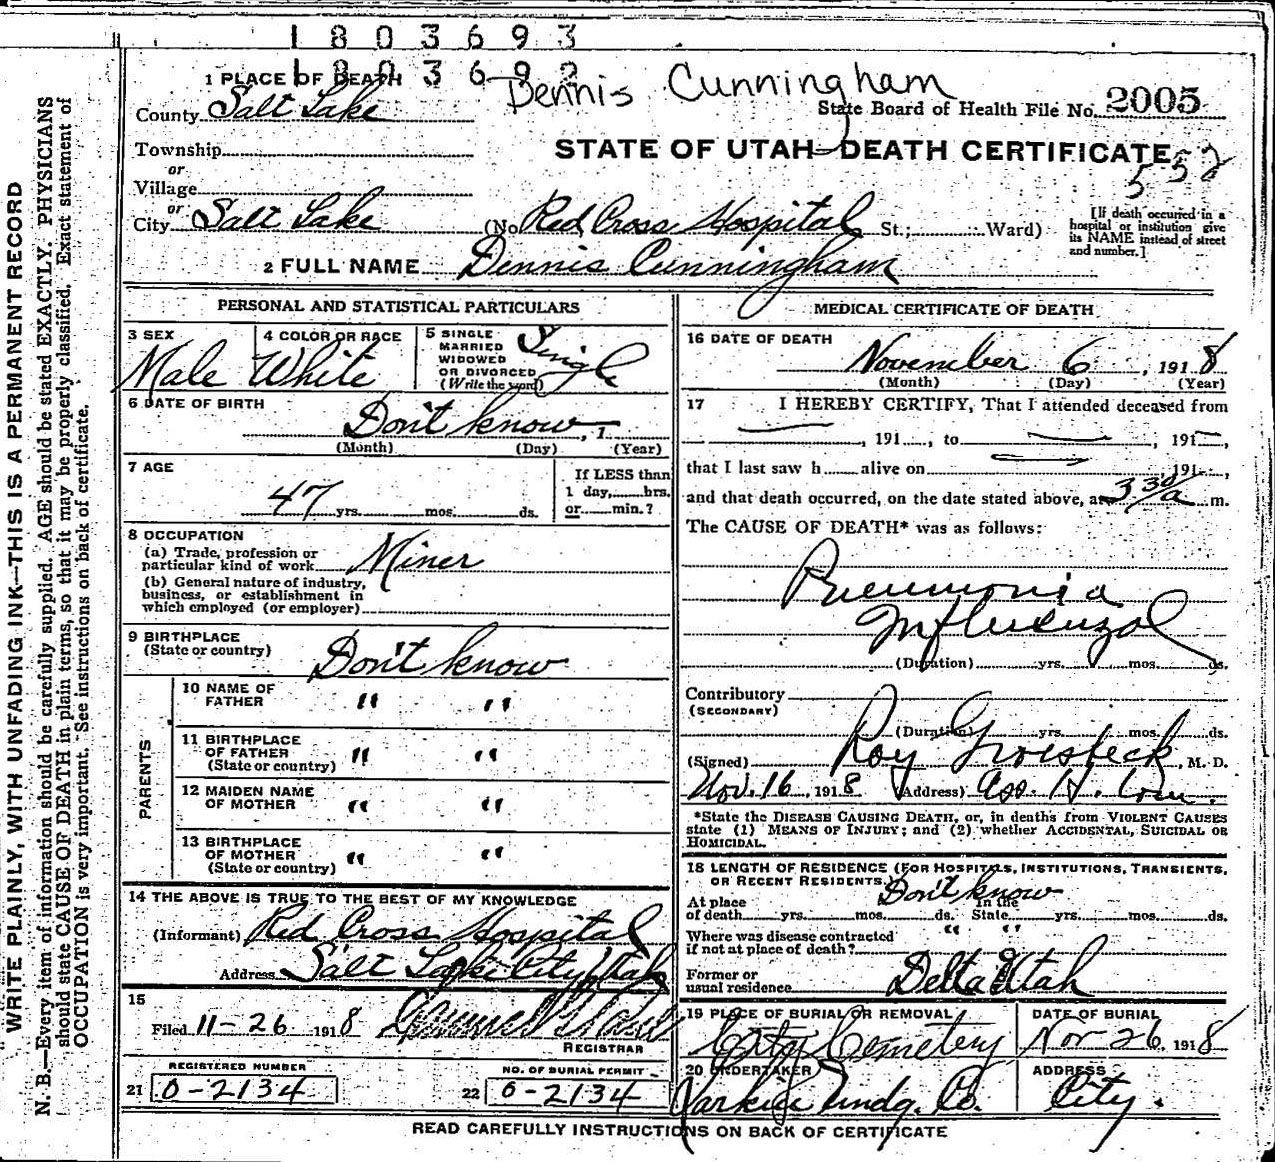 1803693
1803692
Dennis Cunningham
1 PLACE OF DEATH
County Salt Lake
State Board of Health File No. 2005
Township
or
STATE OF UTAH—DEATH CERTIFICATE
552
Village
or
City Salt Lake (No. Red Cross Hospital St.; Ward)
[If death occurred in a hospital or institution give its NAME instead of street and number.]
2 FULL NAME Dennis Cunningham
PERSONAL AND STATISTICAL PARTICULARS
3 SEX Male
4 COLOR OR RACE White
5 SINGLE MARRIED WIDOWED OR DIVORCED (Write the word) Single
6 DATE OF BIRTH
Don't know, 1
(Month) (Day) (Year)
7 AGE
47 yrs. mos. ds.
If LESS than 1 day, hrs. or min.?
8 OCCUPATION
(a) Trade, profession or particular kind of work Miner
(b) General nature of industry, business, or establishment in which employed (or employer)
9 BIRTHPLACE
(State or country) Don't know
PARENTS
10 NAME OF FATHER " "
11 BIRTHPLACE OF FATHER (State or country) " "
12 MAIDEN NAME OF MOTHER " "
13 BIRTHPLACE OF MOTHER (State or country) " "
14 THE ABOVE IS TRUE TO THE BEST OF MY KNOWLEDGE
(Informant) Red Cross Hospital
Address Salt Lake City Utah
15
Filed 11-26 1918
REGISTRAR
REGISTERED NUMBER
21 0-2134
NO. OF BURIAL PERMIT
22 0-2134
MEDICAL CERTIFICATE OF DEATH
16 DATE OF DEATH
November 6, 1918
(Month) (Day) (Year)
17 I HEREBY CERTIFY, That I attended deceased from
, 191 , to , 191 ,
that I last saw h alive on 191 ,
and that death occurred, on the date stated above, at 3 30/a m.
The CAUSE OF DEATH* was as follows:
Pneumonia
Influenzal
(Duration) yrs. mos. ds.
Contributory
(SECONDARY)
(Duration) yrs. mos. ds.
(Signed) Roy Groesbeck, M. D.
Nov. 16, 1918 (Address) Ass. H. Com.
*State the DISEASE CAUSING DEATH, or, in deaths from VIOLENT CAUSES
state (1) MEANS OF INJURY; and (2) whether ACCIDENTAL, SUICIDAL OR
HOMICIDAL.
18 LENGTH OF RESIDENCE (FOR HOSPITALS, INSTITUTIONS, TRANSIENTS,
OR RECENT RESIDENTS) Don't know
At place of death yrs. mos. ds. In the State yrs. mos. ds.
Where was disease contracted if not at place of death? " "
Former or usual residence Delta Utah
19 PLACE OF BURIAL OR REMOVAL City Cemetery
DATE OF BURIAL Nov 26, 1918
20 UNDERTAKER Undg. Co.
ADDRESS City.
READ CAREFULLY INSTRUCTIONS ON BACK OF CERTIFICATE
WRITE PLAINLY, WITH UNFADING INK—THIS IS A PERMANENT RECORD
N. B.—Every item of information should be carefully supplied. AGE should be stated EXACTLY. PHYSICIANS
should state CAUSE OF DEATH in plain terms, so that it may be properly classified. Exact statement of
OCCUPATION is very important. See instructions on back of certificate.